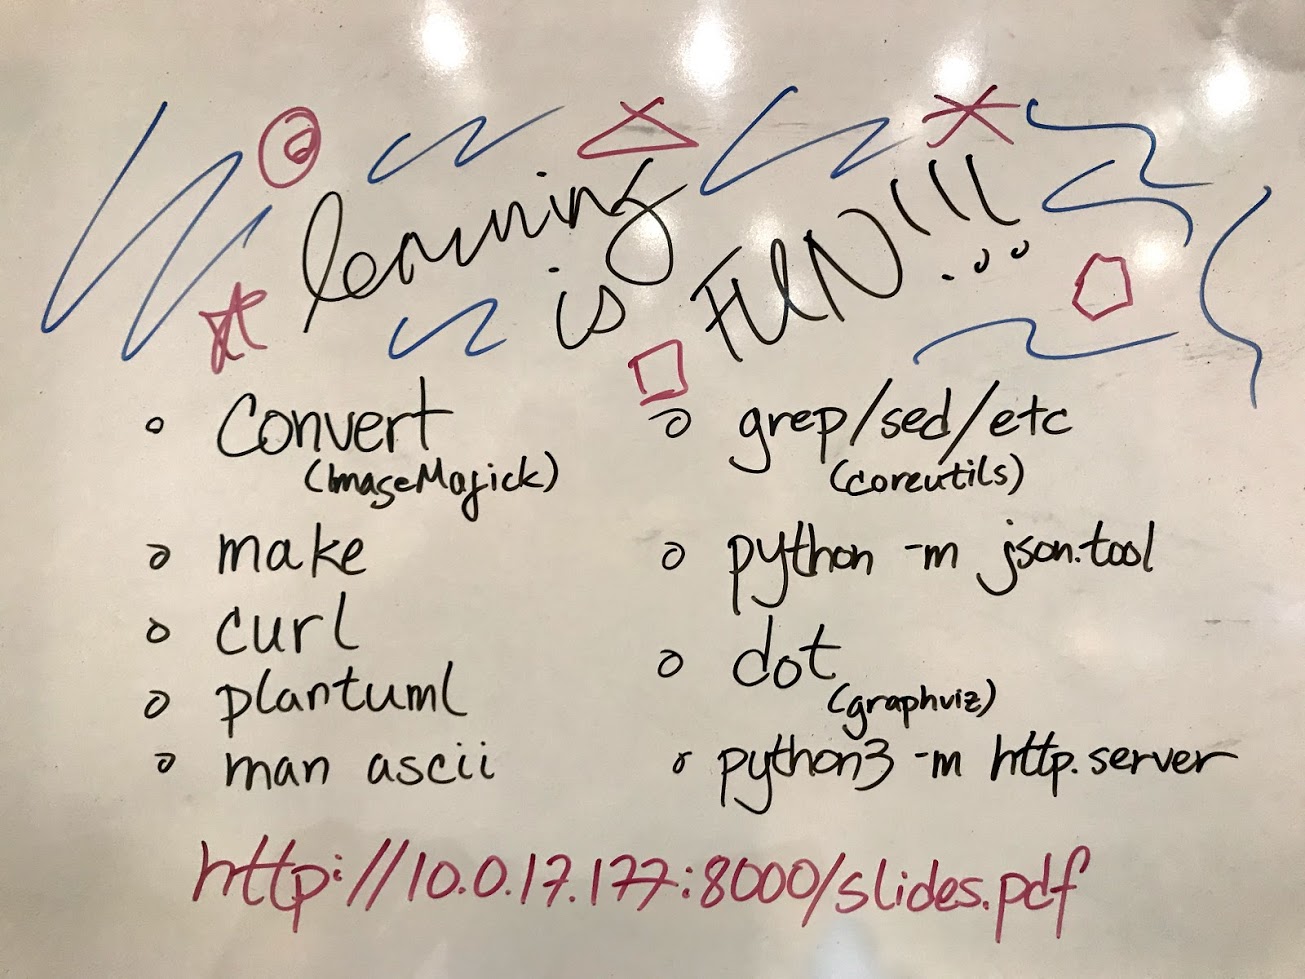 learning
is FUN!!!
convert
(ImageMagick)
make
curl
plantuml
man ascii
grep/sed/etc
(coreutils)
python -m json.tool
dot
(graphviz)
python3 -m http.server
http://10.0.17.177:8000/slides.pdf